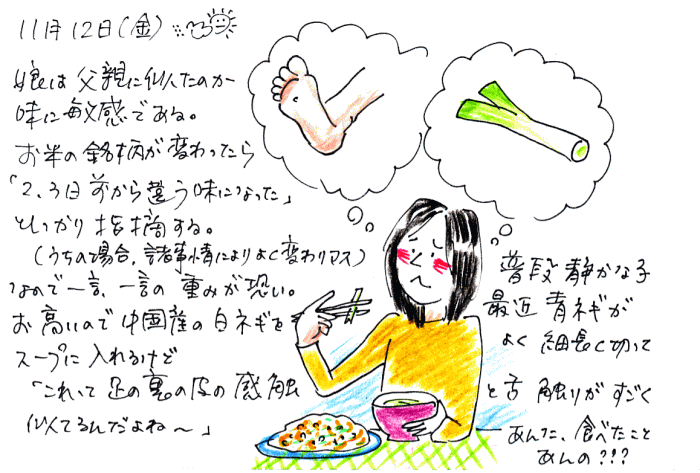 11月12日(金)
娘は父親に似たのか
味に敏感である。
お米の銘柄が変わったら
「2、3日前から違う味になった」
としっかり指摘する。
(うちの場合、諸事情によりよく変わりマス)
なので一言、一言の重みが恐い。
お高いので中国産の白ネギを
スープに入れるけど
「これって足の裏の皮の感触
似てるんだよね〜」
普段静かな子
最近青ネギが
よく細長く切って
と舌触りがすごく
あんた、食べたこと
あんの???